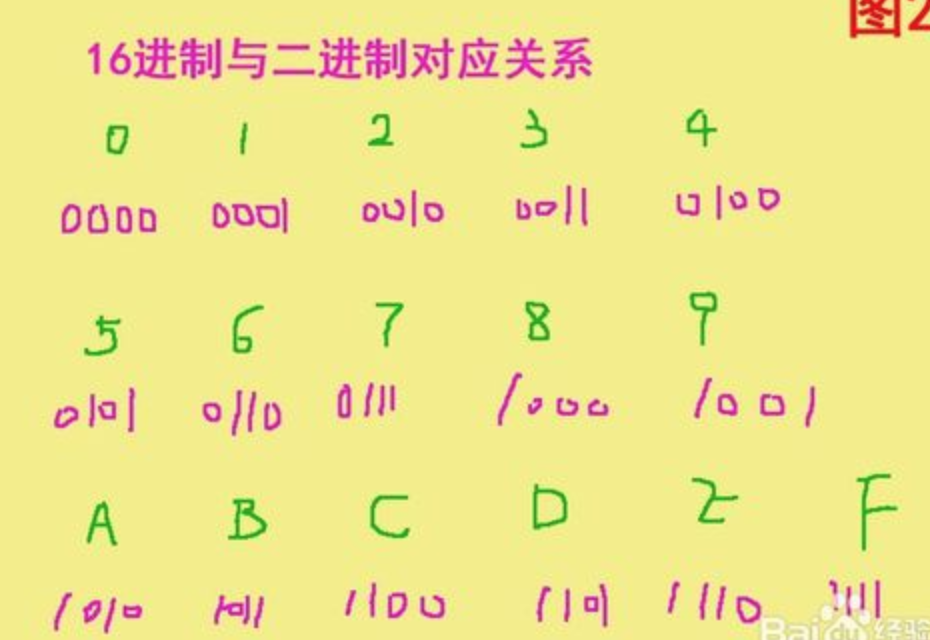 图2
16进制与二进制对应关系
0 1 2 3 4
0000 0001 0010 0011 0100
5 6 7 8 9
0101 0110 0111 1000 1001
A B C D E F
1010 1011 1100 1101 1110 1111
Bai du 经验